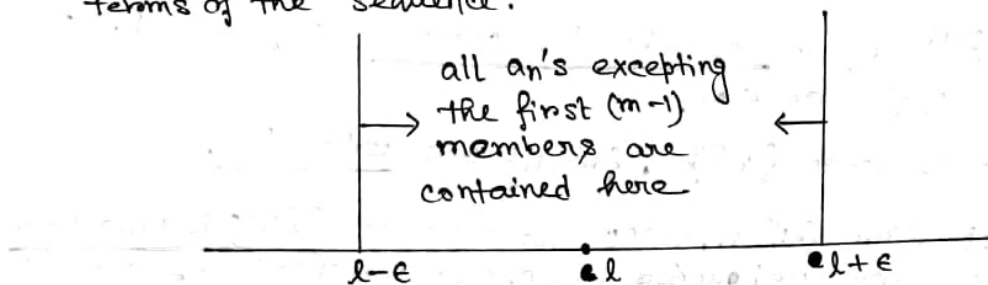 terms of the sequence.
all an's excepting
the first (m-1)
members are
contained here
l-ϵ l l+ϵ